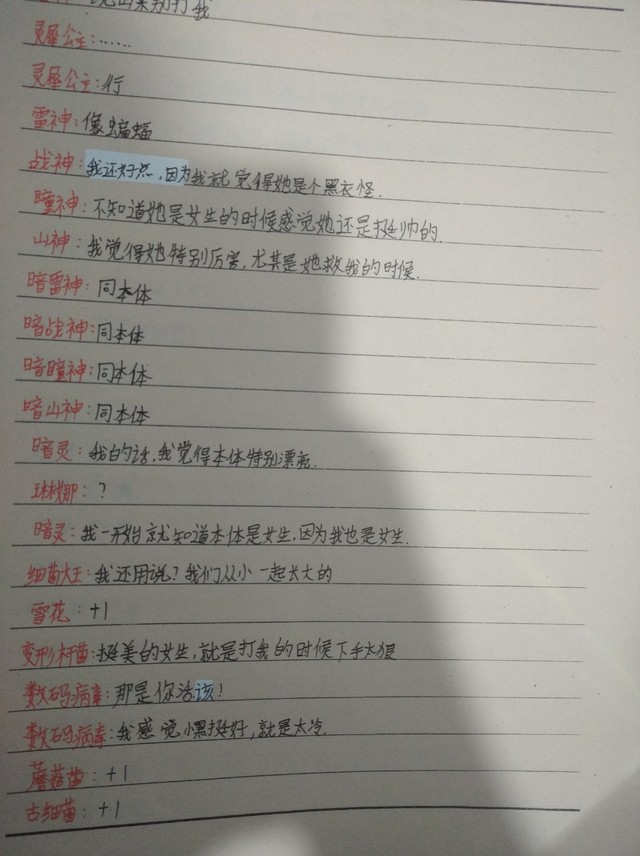 说出来别打我
灵犀公主：……
灵犀公主：行
雷神：像蝙蝠
战神：我还好点，因为我就觉得她是个黑衣怪.
瞳神：不知道她是女生的时候感觉她还是挺帅的.
山神：我觉得她特别厉害，尤其是她救我的时候.
暗雷神：同本体
暗战神：同本体
暗瞳神：同本体
暗山神：同本体
暗灵：我的话，我觉得本体特别漂亮.
琳娜：？
暗灵：我一开始就知道本体是女生，因为我也是女生.
细菌大王：我还用说？我们从小一起长大的
雪花：+1
变形杆菌：挺美的女生，就是打我的时候下手太狠
数码病毒：那是你活该！
数码病毒：我感觉小黑挺好，就是太冷.
蘑菇菌：+1
古细菌：+1